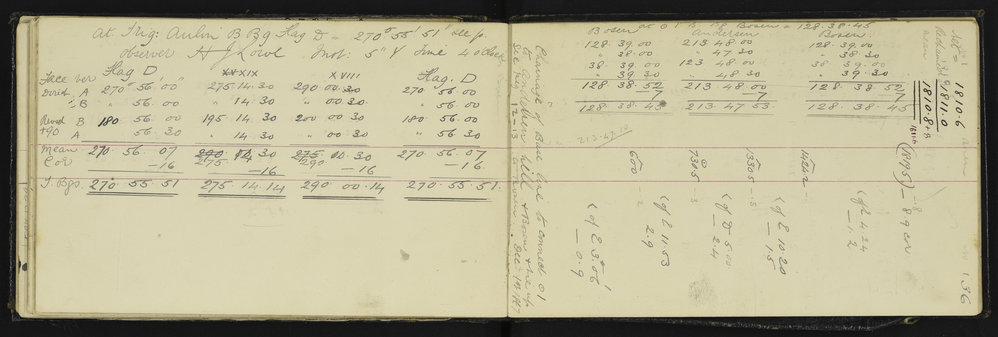 At Trig: Aulin B Bg Flag D = 270° 55' 51" see p.
observer H J Lowe Inst: 5" V Time 4 o'clock
Face ver Flag D. XVXIX XVIII Flag. D
Direct A 270° 56' 00" 275. 14. 30 290 00 30 270 56 00
" B " 56. 00 " 14. 30 " 00. 30 " 56 00
Revsd B 180 56 00 195 14. 30 200 00 30 180 56. 00
+90 A 56. 30 " 14. 30 " 00 30 " 56. 30
Mean 270. 56. 07 275 14 30 290 00. 30 270. 56. 07
Cor -16 -16 -16 -16
T. Bgs. 270. 55. 51 275. 14. 14 290 00. 14 270. 55. 51.
Chainage of Base line to connect O1
to Andersen hill
See page 12-13
at O1 Bosen = 128. 38. 45
Bosen. Andersen Bosen.
128. 39. 00 213. 48 00 128. 39. 00
" 38. 00 " 47. 30 " 38 30
38. 39. 00 123 48 00 38 39. 00
" 39 30 " 48 30 " 39. 30
128 38 52 213. 48. 00 128. 38. 52
-7 -7 -7
128. 38. 45 213. 47. 53 128. 38. 45
213. 47. 10
6600 -2
7305 -3
73305 -.5
14242
(1895) -8 g cor
(of E 3.06'
-0.9
(of E 11.53
2.9
(of D 5.00
-2.4
(of E 10.20
-1.5
(of E 4 24
-1.2
1810.6
Reduced 1811.0
1810.8
136